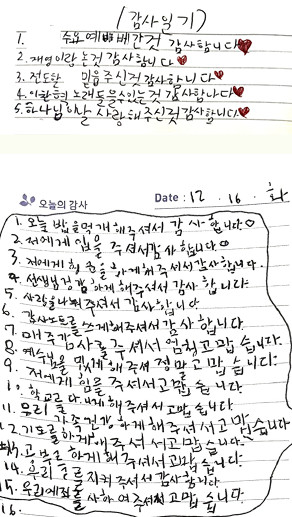 (감사일기)
1. 주일예배간것 감사합니다
2. 재영이랑 논것 감사합니다
3. 전도할 믿음주신것 감사합니다
4. 노래들을수있는것 감사합니다
5. 하나님이날 사랑해주신것 감사합니다
오늘의 감사 Date : 12 . 16 . 화
1. 오늘 밥을먹게해주셔서 감사합니다
2. 저에게 입을 주셔서감사합니다
3. 저에게 하게해주셔서감사합니다.
4. 선생님 하게해주셔서 감사합니다.
5. 사랑을나눠주셔서감사합니다
6. 감사노트를쓰게해주셔서감사합니다.
7. 매주 주셔서 고맙습니다.
8. 예수님을 믿게해주셔 정말고맙습니다.
9. 저에게 힘을주셔서고맙습니다
10. 학교를 다니게해주셔서 고맙습니다.
11. 우리 가족 건강하게해주셔서고맙습니다
12. 기도를하게해주셔서고맙습니다.
13. 공부를하게해주셔서고맙습니다.
14. 우리 지켜주셔서감사합니다
15. 우리 사랑하여주셔서고맙습니다
16.